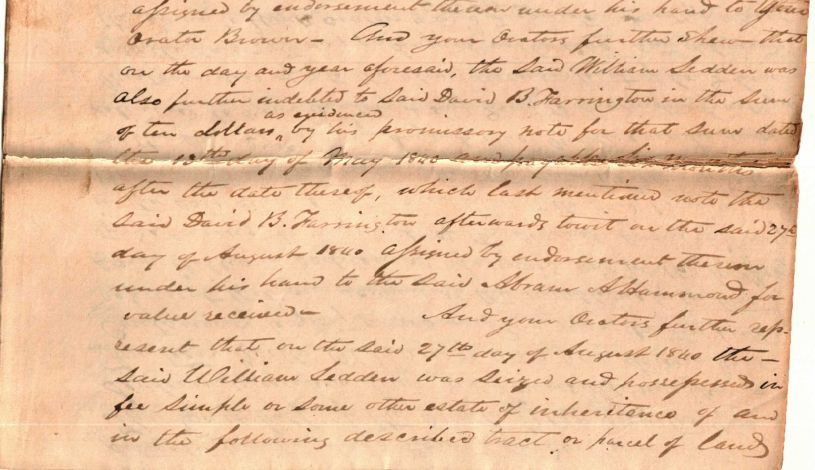 assigned by endorsement thereon under his hand to your
Orator Brown - And your Orators further shew that
on the day and year aforesaid, the said William Sedden was
also further indebted to said David B. Farrington in the sum
as evidenced
of ten dollars ^ by his promissory note for that sum dated
the 18th day of May 1840 and payable six months
after the date thereof, which last mentioned note the
said David B. Farrington afterwards towit on the said 27th
day of August 1840 assigned by endorsement thereon
under his hand to the said Abram A Hammond for
value received - And your Orators further rep-
resent that on the said 27th day of August 1840 the -
said William Sedden was seized and possessed in
fee simple or some other estate of inheritance of and
in the following described tract or parcel of land